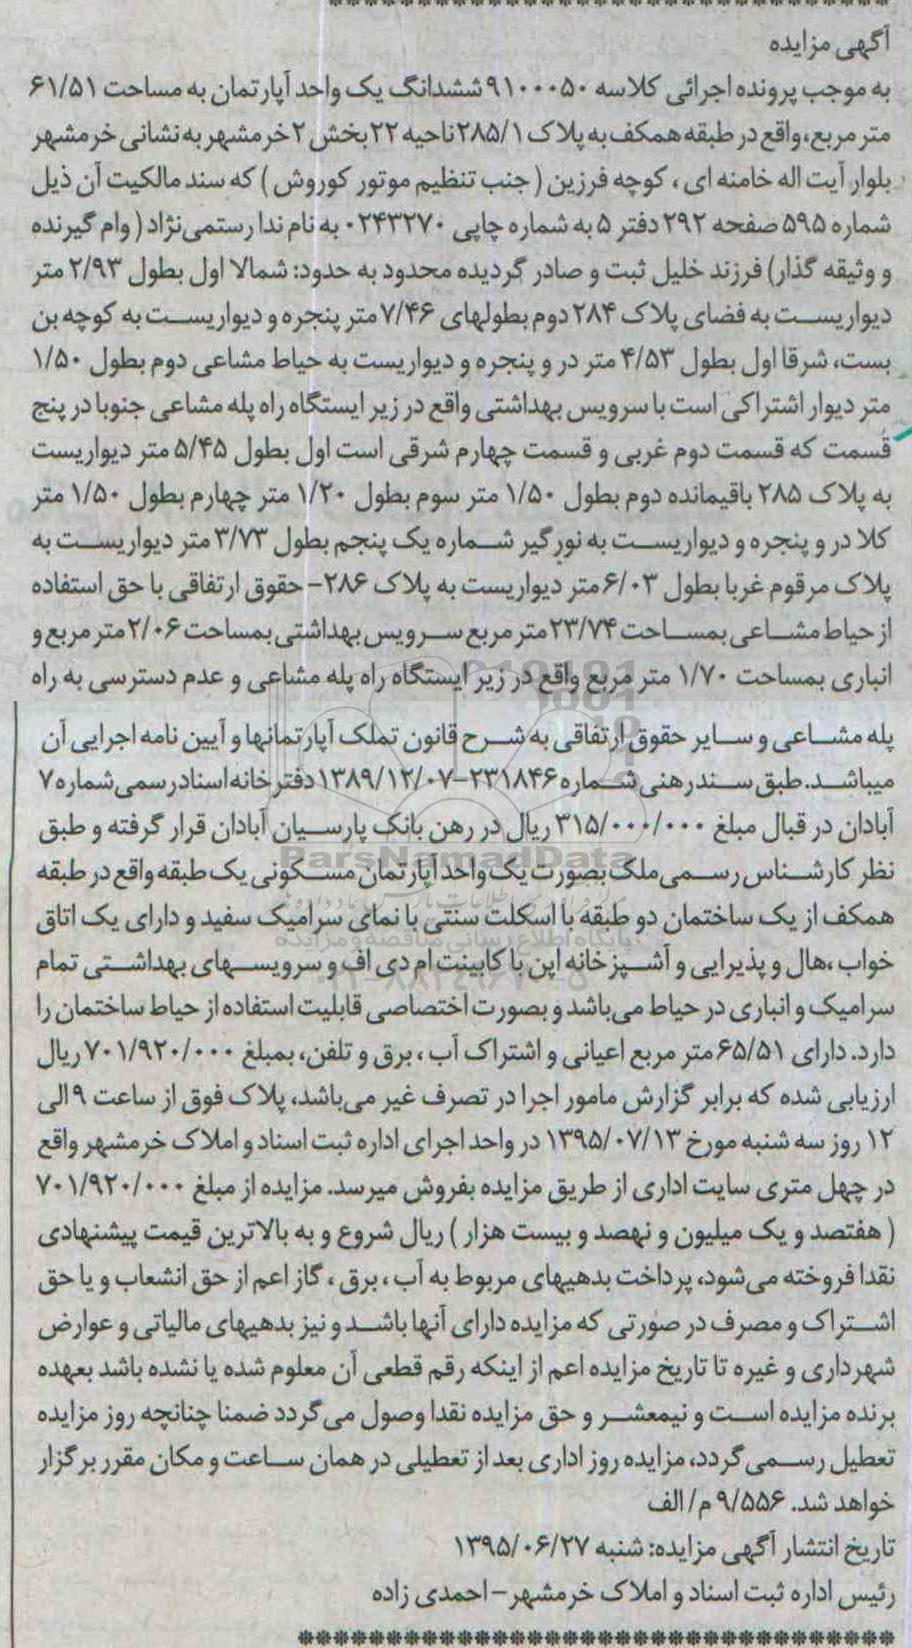 آگهی مزایده
به موجب پرونده اجرائی کلاسه ۹۱۰۰۰۵۰ ششدانگ یک واحد آپارتمان به مساحت ۶۱/۵۱
متر مربع، واقع در طبقه همکف به پلاک ۲۸۵/۱ ناحیه ۲۲ بخش ۲ خرمشهر به نشانی خرمشهر
بلوار آیت اله خامنه ای ، کوچه فرزین ( جنب تنظیم موتور کوروش ) که سند مالکیت آن ذیل
شماره ۵۹۵ صفحه ۲۹۲ دفتر ۵ به شماره چاپی ۰۲۴۳۲۷۰ به نام ندا رستمی‌نژاد ( وام گیرنده
و وثیقه گذار) فرزند خلیل ثبت و صادر گردیده محدود به حدود: شمالا اول بطول ۲/۹۳ متر
دیواریست به فضای پلاک ۲۸۴ دوم بطولهای ۷/۴۶ متر پنجره و دیواریست به کوچه بن
بست، شرقا اول بطول ۴/۵۳ متر در و پنجره و دیواریست به حیاط مشاعی دوم بطول ۱/۵۰
متر دیوار اشتراکی است با سرویس بهداشتی واقع در زیر ایستگاه راه پله مشاعی جنوبا در پنج
قسمت که قسمت دوم غربی و قسمت چهارم شرقی است اول بطول ۵/۴۵ متر دیواریست
به پلاک ۲۸۵ باقیمانده دوم بطول ۱/۵۰ متر سوم بطول ۱/۲۰ متر چهارم بطول ۱/۵۰ متر
کلا در و پنجره و دیواریست به نورگیر شماره یک پنجم بطول ۳/۷۳ متر دیواریست به
پلاک مرقوم غربا بطول ۶/۰۳ متر دیواریست به پلاک ۲۸۶- حقوق ارتفاقی با حق استفاده
از حیاط مشاعی بمساحت ۲۳/۷۴ متر مربع سرویس بهداشتی بمساحت ۲/۰۶ متر مربع و
انباری بمساحت ۱/۷۰ متر مربع واقع در زیر ایستگاه راه پله مشاعی و عدم دسترسی به راه
پله مشاعی و سایر حقوق ارتفاقی به شرح قانون تملک آپارتمانها و آیین نامه اجرایی آن
میباشد. طبق سند رهنی شماره ۲۳۱۸۴۶-۱۳۸۹/۱۲/۰۷ دفترخانه اسناد رسمی شماره ۷
آبادان در قبال مبلغ ۳۱۵/۰۰۰/۰۰۰ ریال در رهن بانک پارسیان آبادان قرار گرفته و طبق
ParsNamadData
نظر کارشناس رسمی ملک بصورت یک واحد آپارتمان مسکونی یک طبقه واقع در طبقه
همکف از یک ساختمان دو طبقه با اسکلت سنتی با نمای سرامیک سفید و دارای یک اتاق
پایگاه اطلاع رسانی مناقصه و مزایده
خواب ،هال و پذیرایی و آشپزخانه اپن با کابینت ام دی اف و سرویسهای بهداشتی تمام
سرامیک و انباری در حیاط می‌باشد و بصورت اختصاصی قابلیت استفاده از حیاط ساختمان را
دارد. دارای ۶۵/۵۱ متر مربع اعیانی و اشتراک آب ، برق و تلفن، بمبلغ ۷۰۱/۹۲۰/۰۰۰ ریال
ارزیابی شده که برابر گزارش مامور اجرا در تصرف غیر می‌باشد، پلاک فوق از ساعت ۹ الی
۱۲ روز سه شنبه مورخ ۱۳۹۵/۰۷/۱۳ در واحد اجرای اداره ثبت اسناد و املاک خرمشهر واقع
در چهل متری سایت اداری از طریق مزایده بفروش میرسد. مزایده از مبلغ ۷۰۱/۹۲۰/۰۰۰
( هفتصد و یک میلیون و نهصد و بیست هزار ) ریال شروع و به بالاترین قیمت پیشنهادی
نقدا فروخته می‌شود، پرداخت بدهیهای مربوط به آب ، برق ، گاز اعم از حق انشعاب و یا حق
اشتراک و مصرف در صورتی که مزایده دارای آنها باشد و نیز بدهیهای مالیاتی و عوارض
شهرداری و غیره تا تاریخ مزایده اعم از اینکه رقم قطعی آن معلوم شده یا نشده باشد بعهده
برنده مزایده است و نیمعشر و حق مزایده نقدا وصول می‌گردد ضمنا چنانچه روز مزایده
تعطیل رسمی گردد، مزایده روز اداری بعد از تعطیلی در همان ساعت و مکان مقرر برگزار
خواهد شد. ۹/۵۵۶ م/ الف
تاریخ انتشار آگهی مزایده: شنبه ۱۳۹۵/۰۶/۲۷
رئیس اداره ثبت اسناد و املاک خرمشهر - احمدی زاده